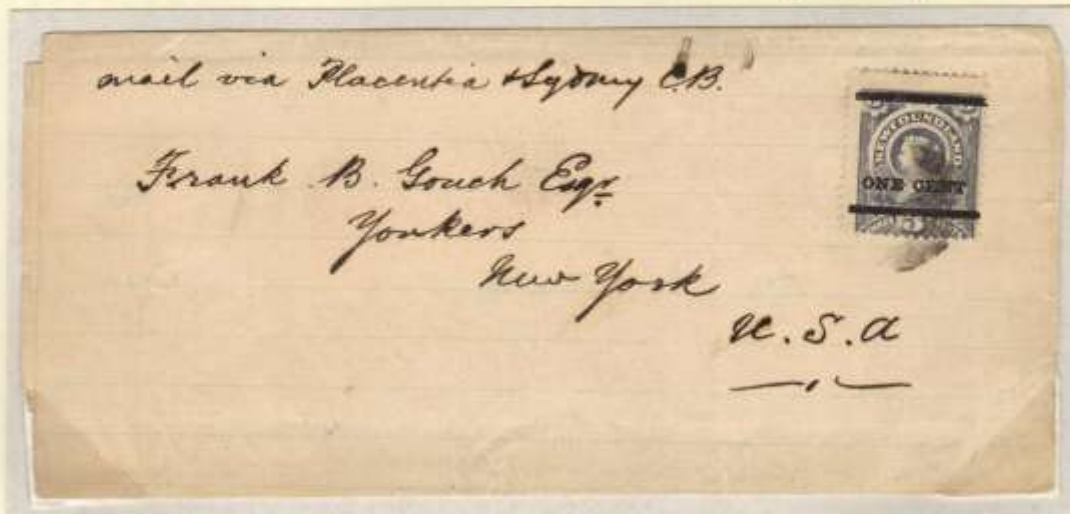 mail via Placentia & Sydney C.B.
Frank B. Gouch Esqr
Yonkers
New York
U.S.A
NEWFOUNDLAND
ONE CENT
3